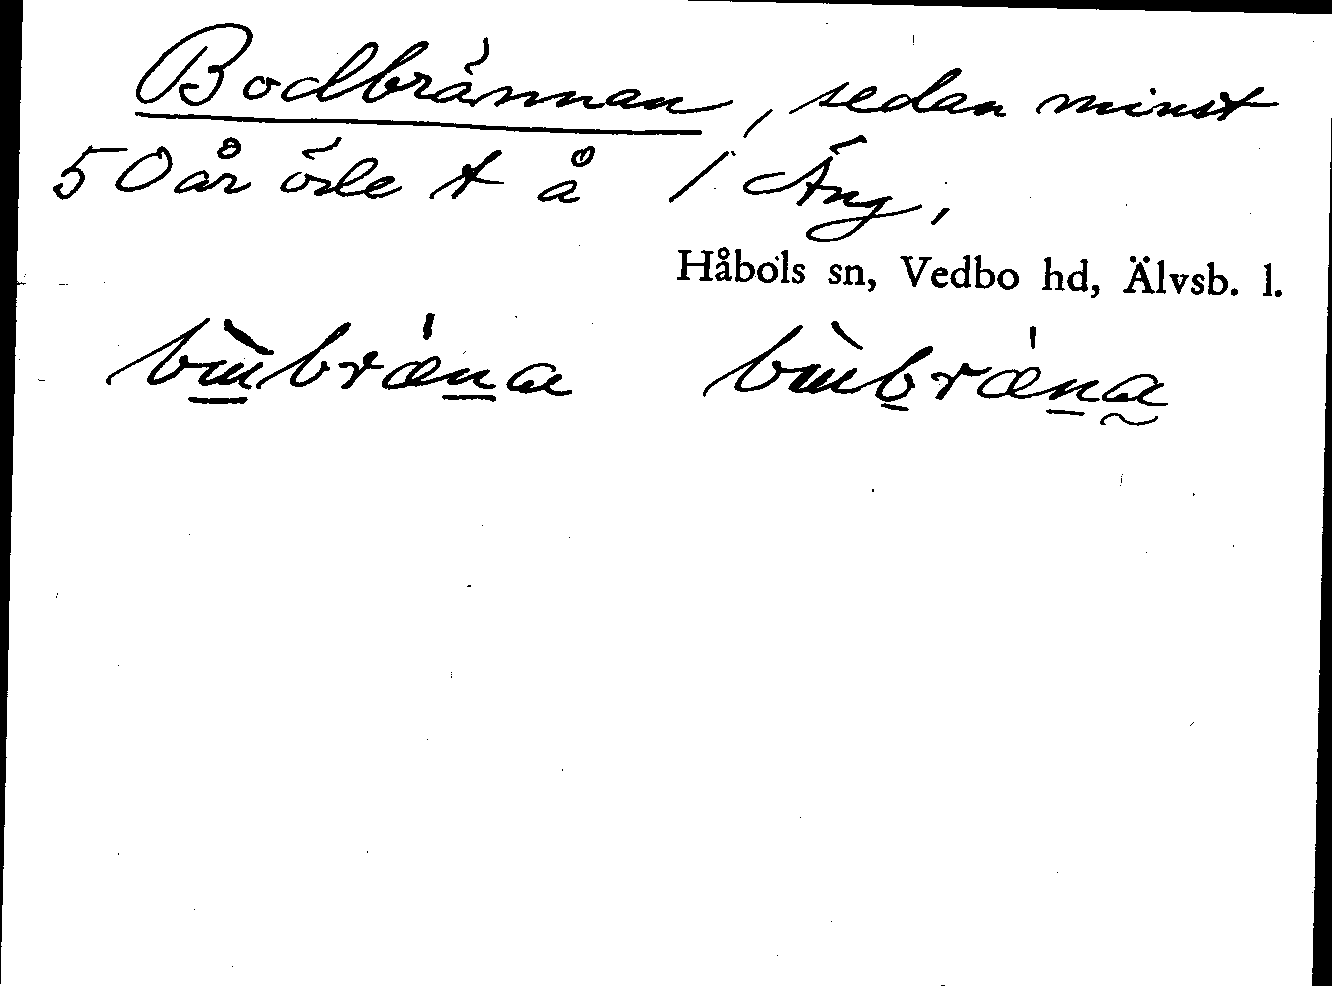 Bodbrännan, sedan minst
50 år öde t å 1 Äng,
Håbols sn, Vedbo hd, Älvsb. l.